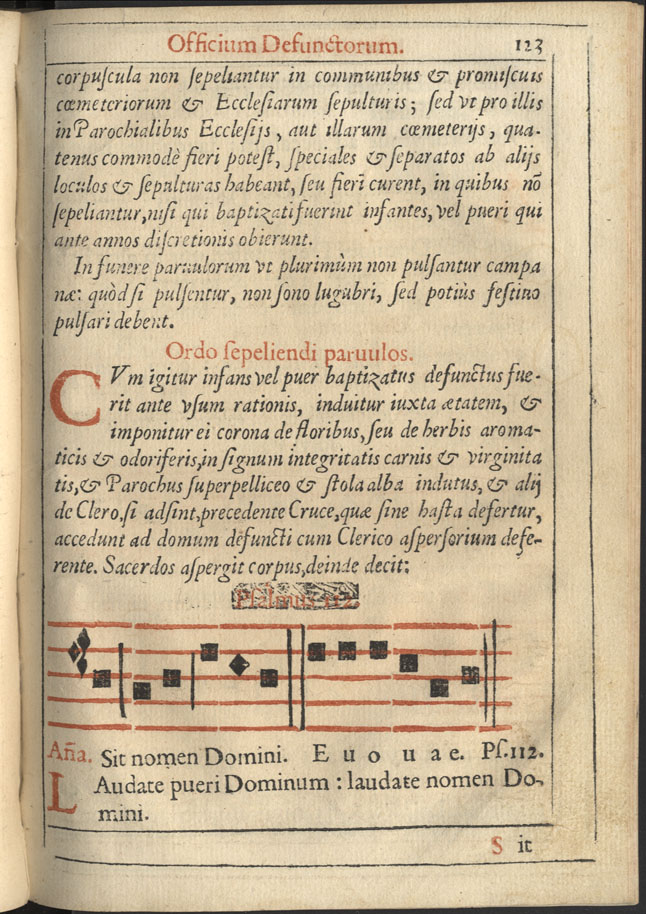 Officium Defunctorum. 123
corpuſcula non ſepeliantur in communibus & promiſcuis
cœmeteriorum & Eccleſiarum ſepulturis; ſed vt pro illis
in Parochialibus Eccleſijs, aut illarum cœmeterijs, qua-
tenus commodè fieri poteſt, ſpeciales & ſeparatos ab alijs
loculos & ſepulturas habeant, ſeu fieri curent, in quibus nō
ſepeliantur, niſi qui baptizati fuerint infantes, vel pueri qui
ante annos diſcretionis obierunt.
In funere paruulorum vt plurimùm non pulſantur campa
næ: quòd ſi pulſentur, non ſono lugubri, ſed potiùs feſtiuo
pulſari debent.
Ordo ſepeliendi paruulos.
CVm igitur infans vel puer baptizatus defunctus fue-
rit ante vſum rationis, induitur iuxta ætatem, &
imponitur ei corona de floribus, ſeu de herbis aroma-
ticis & odoriferis, in ſignum integritatis carnis & virginita
tis, & Parochus ſuperpelliceo & ſtola alba indutus, & alij
de Clero, ſi adſint, precedente Cruce, quæ ſine haſta defertur,
accedunt ad domum defuncti cum Clerico aſperſorium defe-
rente. Sacerdos aſpergit corpus, deinde decit:
Pſalmus 112.
Aña. Sit nomen Domini. E u o u a e. Pſ. 112.
LAudate pueri Dominum: laudate nomen Do-
mini.
S it